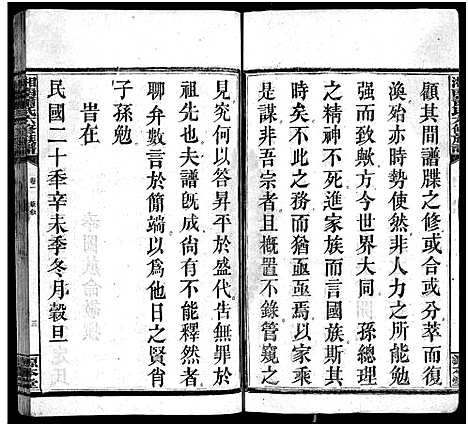 顧其間譜牒之修或合或分萃而復
渙殆亦時勢使然非人力之能勉
强而致歟方今世界大同 孫總理
之精神不死進家族而言國族斯其
時矣而或者尚猶亟亟焉執
是非吾宗者且概置不錄管窺之
見究何以答昇平於盛代告無罪於
祖先也夫譜旣成尙有不能釋然者
聊弁數言於簡端以為他日之賢肖
子孫勉
旹在
民國二十季辛未季冬月糓旦
湘南蕭氏六修族譜
卷一
三